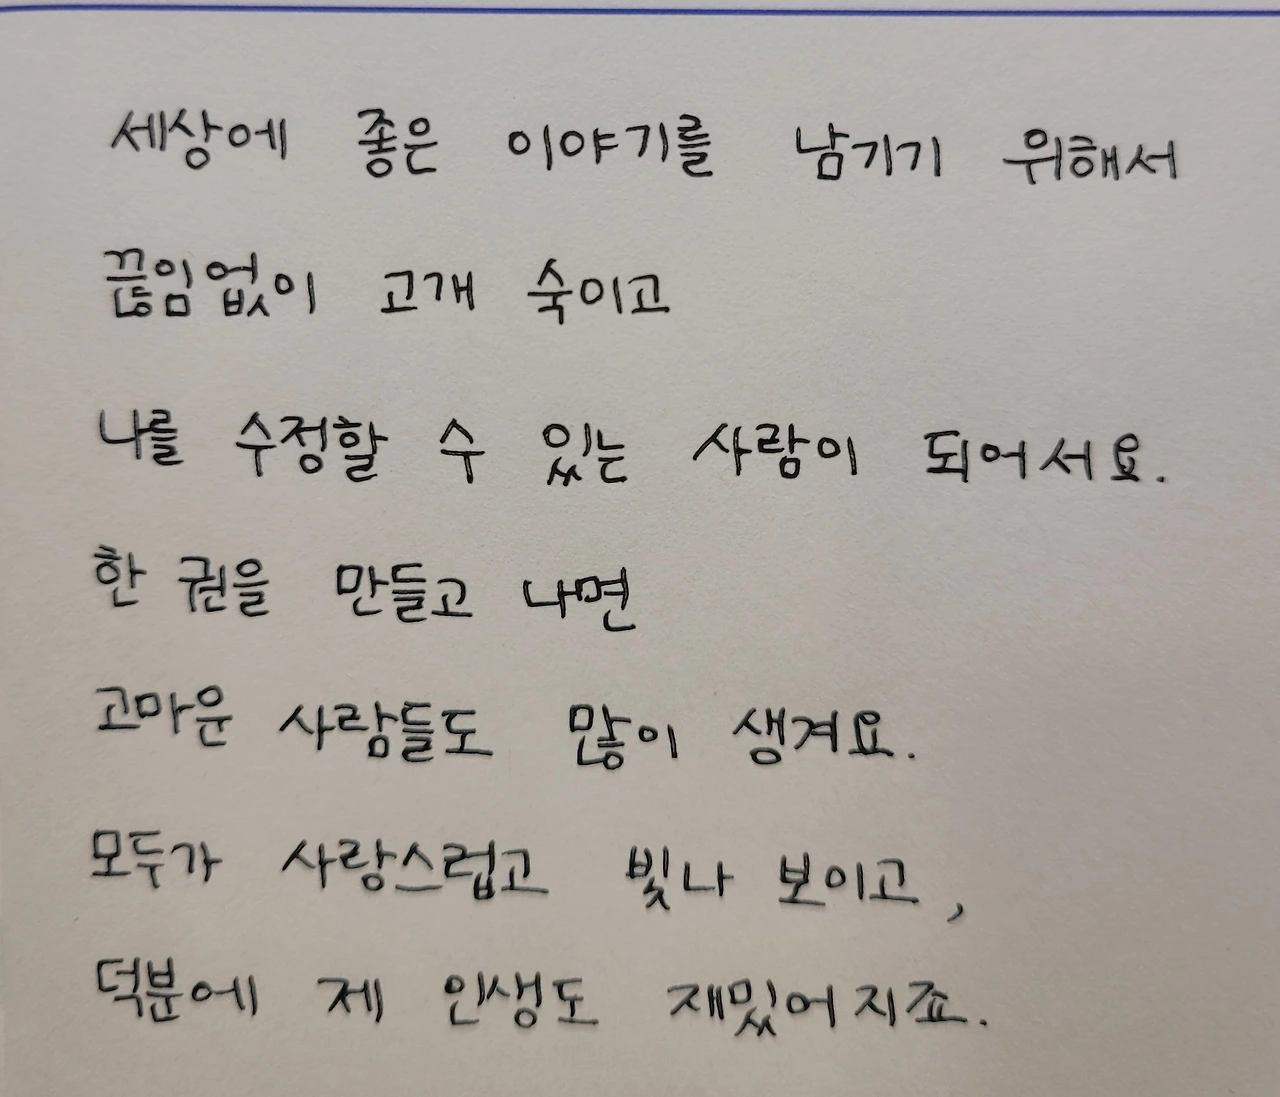 세상에 좋은 이야기를 남기기 위해서
끊임없이 고개 숙이고
나를 수정할 수 있는 사람이 되어서요.
한 권을 만들고 나면
고마운 사람들도 많이 생겨요.
모두가 사랑스럽고 빛나 보이고,
덕분에 제 인생도 재밌어지죠.